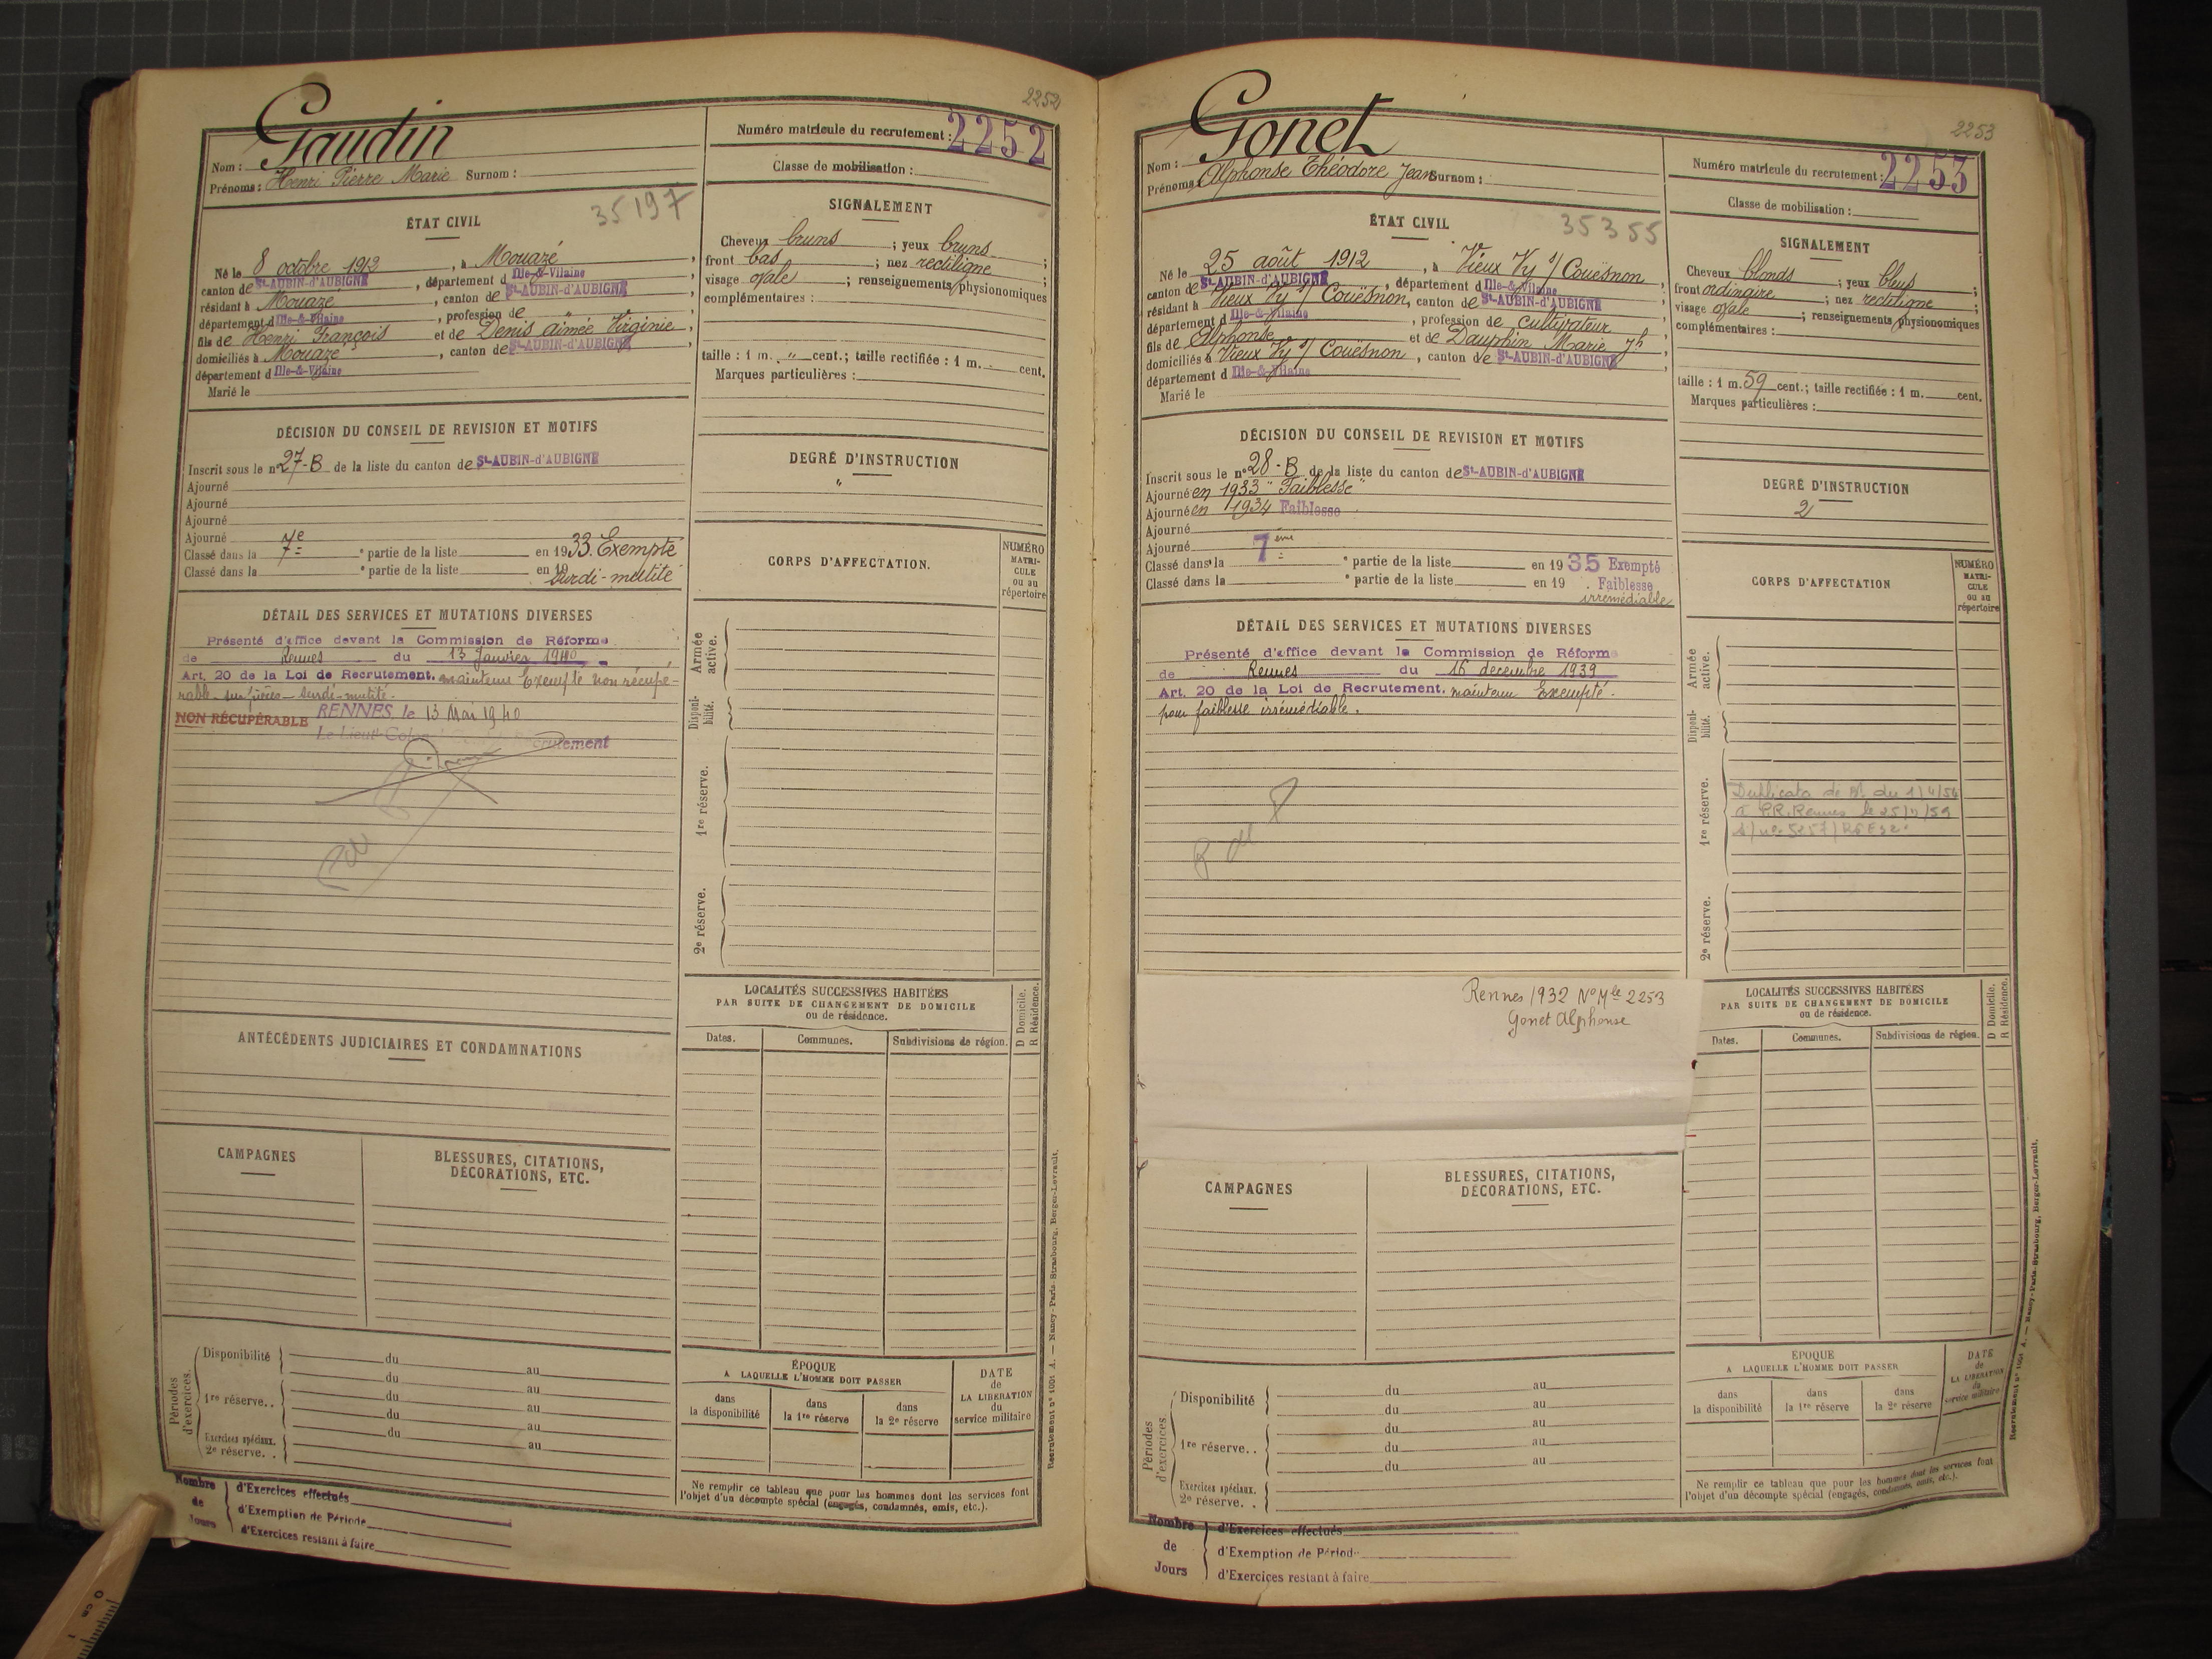 2252
Gaudin
Nom :
Prénoms : Henri Pierre Marie Surnom :
Numéro matricule du recrutement : 2252
Classe de mobilisation :
35197
ÉTAT CIVIL
Né le 8 octobre 1912, à Mouazé,
canton de St-AUBIN-d'AUBIGNÉ, département d Ille-&-Vilaine
résidant à Mouazé, canton de St-AUBIN-d'AUBIGNÉ,
département d Ille-&-Vilaine, profession de "
fils de Henri François et de Denis aimée Virginie,
domiciliés à Mouazé, canton de St-AUBIN-d'AUBIGNÉ,
département d Ille-&-Vilaine
Marié le
SIGNALEMENT
Cheveux bruns ; yeux bruns ;
front bas ; nez rectiligne ;
visage ovale ; renseignements physionomiques
complémentaires :
taille : 1 m. " cent.; taille rectifiée : 1 m. cent.
Marques particulières :
DÉCISION DU CONSEIL DE REVISION ET MOTIFS
Inscrit sous le n° 27-B de la liste du canton de St-AUBIN-d'AUBIGNÉ
Ajourné
Ajourné
Ajourné
Ajourné
Classé dans la 7e e partie de la liste en 1933. Exempté
Classé dans la e partie de la liste en 19 surdi-mutité
DEGRÉ D'INSTRUCTION
"
CORPS D'AFFECTATION.
NUMÉRO
MATRI-
CULE
ou au
répertoire
DÉTAIL DES SERVICES ET MUTATIONS DIVERSES
Présenté d'office devant la Commission de Réforme
de Rennes du 13 Janvier 1940
Art. 20 de la Loi de Recrutement. maintenu Exempté non récupé-
rable sur pièces - surdi-mutité.
NON RÉCUPÉRABLE RENNES, le 13 Mai 1940
Le Lieut-Colonel Recrutement
Armée
active.
Disponi-
bilité.
1re réserve.
2e réserve.
LOCALITÉS SUCCESSIVES HABITÉES
PAR SUITE DE CHANGEMENT DE DOMICILE
ou de résidence.
D Domicile.
R Résidence.
Dates. Communes. Subdivisions de région.
ANTÉCÉDENTS JUDICIAIRES ET CONDAMNATIONS
CAMPAGNES
BLESSURES, CITATIONS,
DÉCORATIONS, ETC.
Périodes
d'exercices.
Disponibilité du au
du au
1re réserve.. du au
du au
Exercices spéciaux. du au
2e réserve. . au
ÉPOQUE
A LAQUELLE L'HOMME DOIT PASSER
dans
la disponibilité
dans
la 1re réserve
dans
la 2e réserve
DATE
de
LA LIBÉRATION
du
service militaire
Ne remplir ce tableau que pour les hommes dont les services font
l'objet d'un décompte spécial (engagés, condamnés, omis, etc.).
Nombre
de
Jours
d'Exercices effectués
d'Exemption de Période
d'Exercices restant à faire
Recrutement n° 1001 A. — Nancy-Paris-Strasbourg, Berger-Levrault.
2253
Gonet
Nom :
Prénoms : Alphonse Théodore Jean Surnom :
Numéro matricule du recrutement : 2253
Classe de mobilisation :
35355
ÉTAT CIVIL
Né le 25 août 1912, à Vieux Vy s/ Couësnon
canton de St-AUBIN-d'AUBIGNÉ, département d Ille-&-Vilaine
résidant à Vieux Vy s/ Couësnon, canton de St-AUBIN-d'AUBIGNÉ
département d Ille-&-Vilaine, profession de cultivateur
fils de Alphonse et de Dauphin Marie Jh,
domiciliés à Vieux Vy s/ Couësnon, canton de St-AUBIN-d'AUBIGNÉ
département d Ille-&-Vilaine
Marié le
SIGNALEMENT
Cheveux blonds ; yeux bleus ;
front ordinaire ; nez rectiligne ;
visage ovale ; renseignements physionomiques
complémentaires :
taille : 1 m. 59 cent.; taille rectifiée : 1 m. cent.
Marques particulières :
DÉCISION DU CONSEIL DE REVISION ET MOTIFS
Inscrit sous le n° 28-B de la liste du canton de St-AUBIN-d'AUBIGNÉ
Ajourné en 1933 "Faiblesse"
Ajourné en 1934 Faiblesse
Ajourné
Ajourné
Classé dans la 7ème e partie de la liste en 1935 Exempté
Classé dans la e partie de la liste en 19 . Faiblesse
irrémédiable
DEGRÉ D'INSTRUCTION
2
CORPS D'AFFECTATION
NUMÉRO
MATRI-
CULE
ou au
répertoire
DÉTAIL DES SERVICES ET MUTATIONS DIVERSES
Présenté d'office devant la Commission de Réforme
de Rennes du 16 décembre 1939
Art. 20 de la Loi de Recrutement. maintenu Exempté.
pour faiblesse irrémédiable.
Armée
active.
Disponi-
bilité.
1re réserve.
Duplicata de du 1/4/54
à P.R. Rennes le 25/11/59
2e réserve.
Rennes 1932 N° Mle 2253
Gonet Alphonse
LOCALITÉS SUCCESSIVES HABITÉES
PAR SUITE DE CHANGEMENT DE DOMICILE
ou de résidence.
D Domicile.
R Résidence.
Dates. Communes. Subdivisions de région.
CAMPAGNES
BLESSURES, CITATIONS,
DÉCORATIONS, ETC.
Périodes
d'exercices
Disponibilité du au
du au
1re réserve.. du au
du au
du au
Exercices spéciaux.
2e réserve. .
ÉPOQUE
A LAQUELLE L'HOMME DOIT PASSER
dans
la disponibilité
dans
la 1re réserve
dans
la 2e réserve
DATE
de
LA LIBÉRATION
du
service militaire
Ne remplir ce tableau que pour les hommes dont les services font
l'objet d'un décompte spécial (engagés, condamnés, omis, etc.).
Nombre
de
Jours
d'Exercices effectués
d'Exemption de Période
d'Exercices restant à faire
Recrutement n° 1001 A. — Nancy-Paris-Strasbourg, Berger-Levrault.
0 cm 1